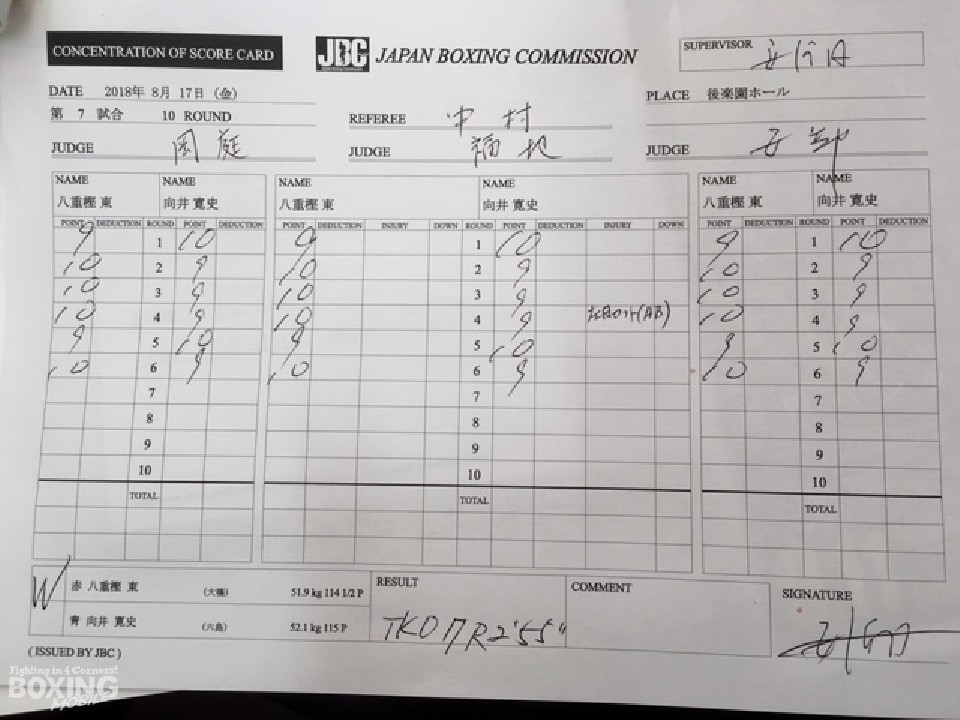 CONCENTRATION OF SCORE CARD
JBC JAPAN BOXING COMMISSION
SUPERVISOR
DATE 2018年 8月 17日 (金)
PLACE 後楽園ホール
第 7 試合 10 ROUND
REFEREE 中村
JUDGE 岡庭
JUDGE 福地
JUDGE
NAME NAME NAME NAME NAME NAME
八重樫 東 向井 寛史 八重樫 東 向井 寛史 八重樫 東 向井 寛史
POINT DEDUCTION ROUND POINT DEDUCTION POINT DEDUCTION INJURY DOWN ROUND POINT DEDUCTION INJURY DOWN POINT DEDUCTION ROUND POINT DEDUCTION
9 1 10 9 1 10 9 1 10
10 2 9 10 2 9 10 2 9
10 3 9 10 3 9 10 3 9
10 4 9 10 4 9 (AB) 10 4 9
9 5 10 9 5 10 9 5 10
10 6 9 10 6 9 10 6 9
7 7 7
8 8 8
9 9 9
10 10 10
TOTAL TOTAL TOTAL
W 赤 八重樫 東 (大橋) 51.9 kg 114 1/2 P
青 向井 寛史 (六島) 52.1 kg 115 P
RESULT
TKO 7R 2'55"
COMMENT
SIGNATURE
( ISSUED BY JBC )
Fighting in 4 Corners!
BOXING
MOBILE